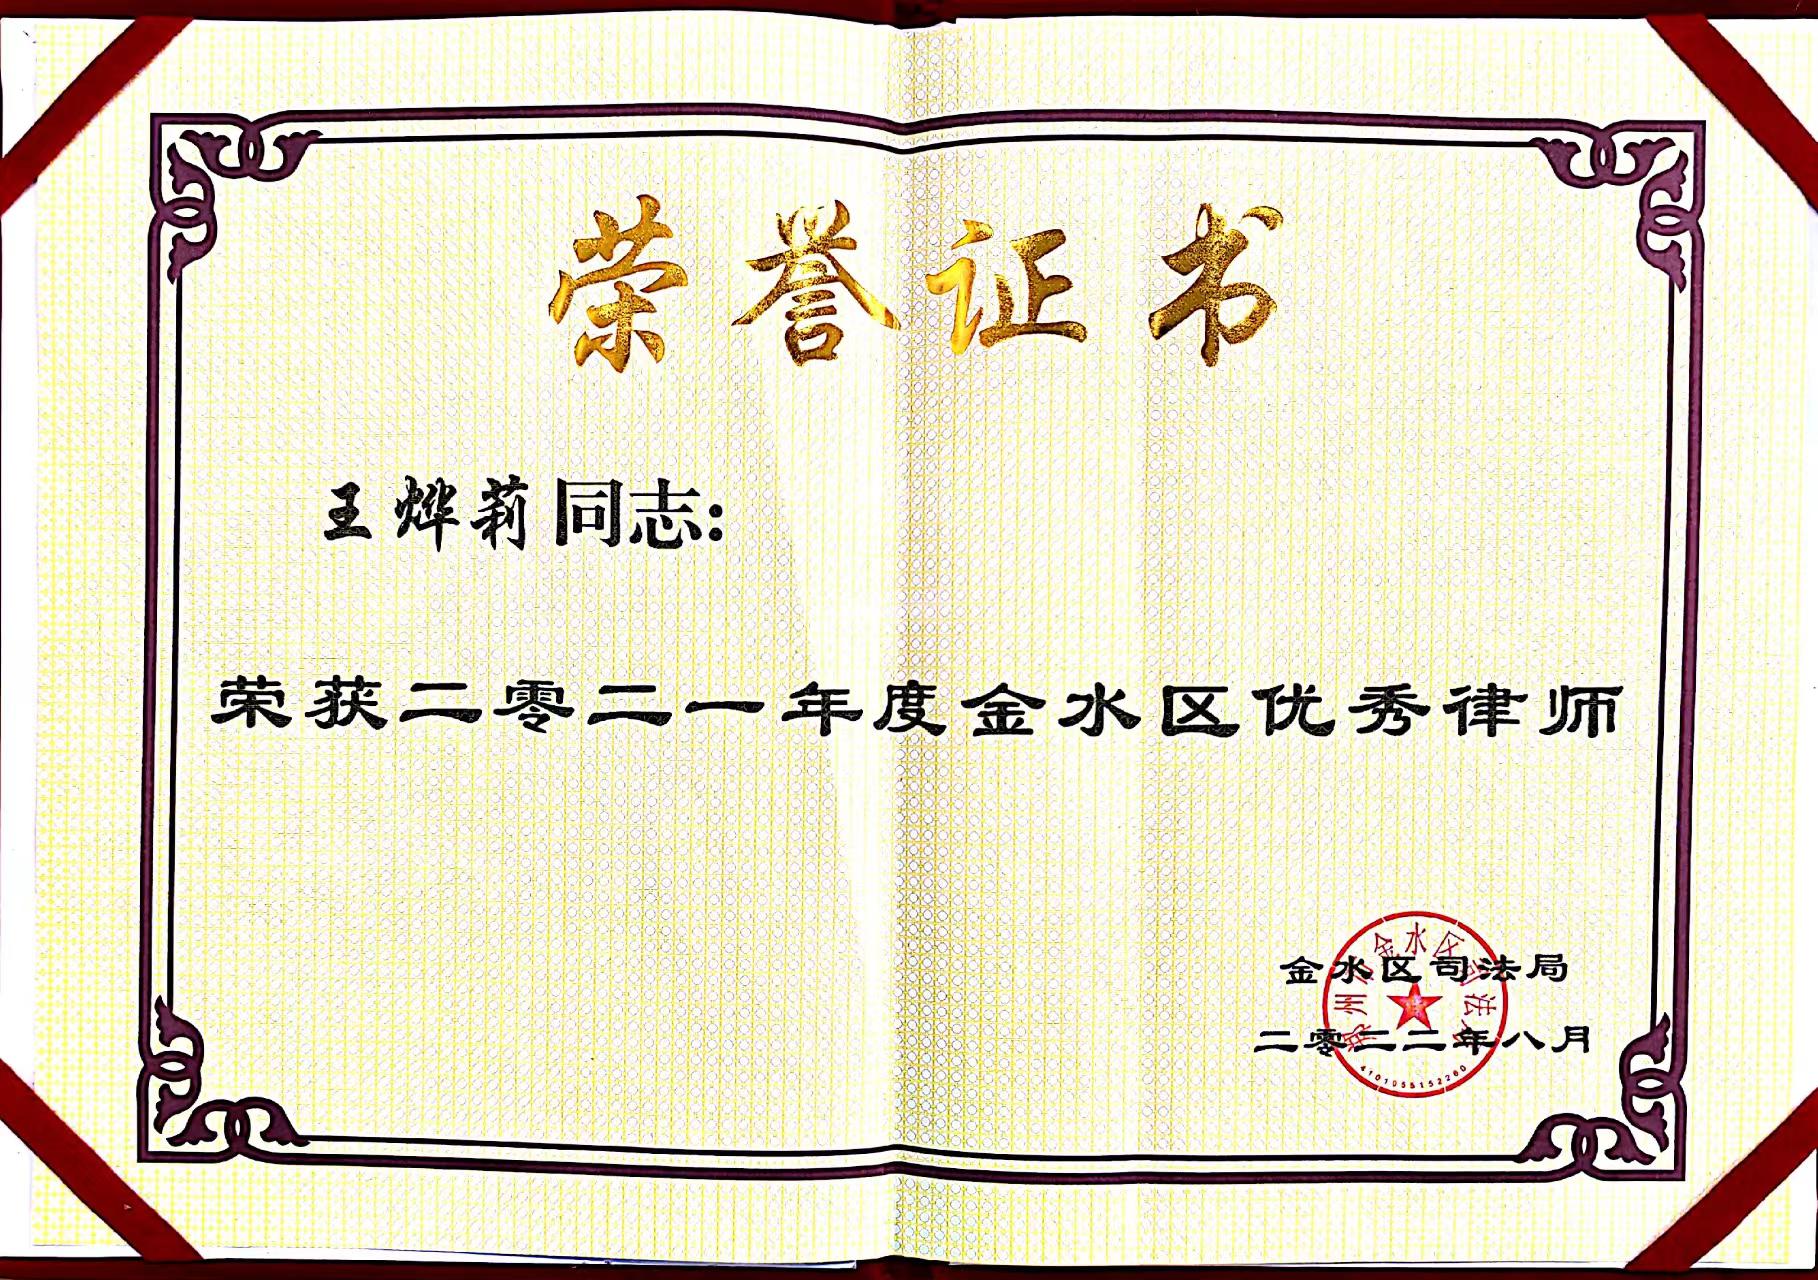 荣誉证书
王烨莉同志：
荣获二零二一年度金水区优秀律师
金水区司法局
二零二二年八月
金水区司法
4101055152260